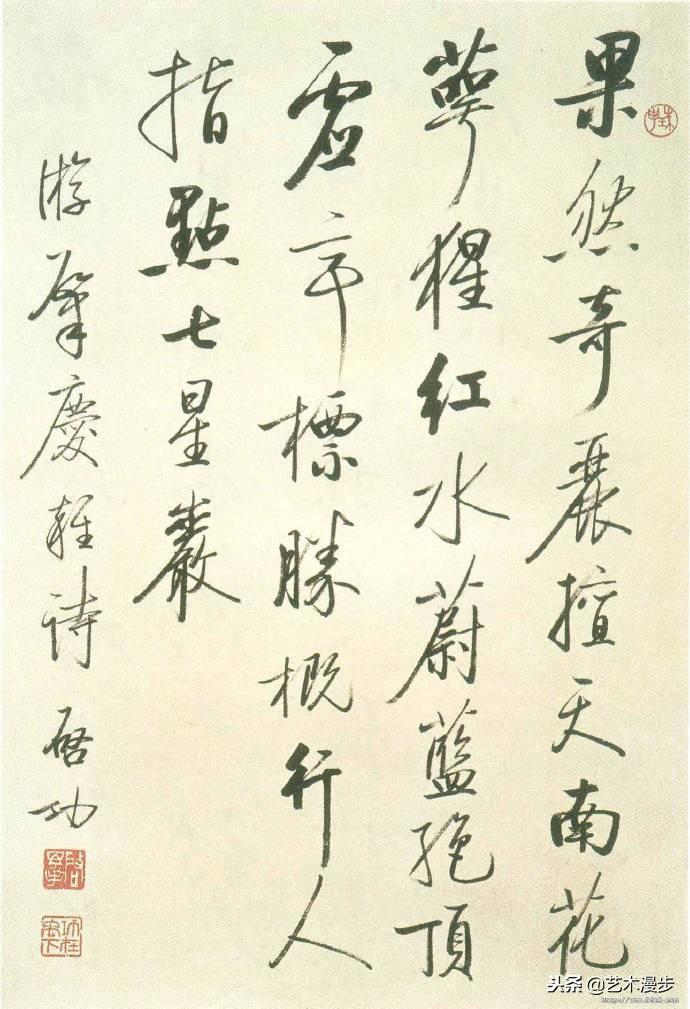 果然奇麗擅天南花
萼猩紅水蔚藍絕頂
虛亭標勝概行人
指點七星巖
游肇慶雜詩 啓功
头条@艺术漫步